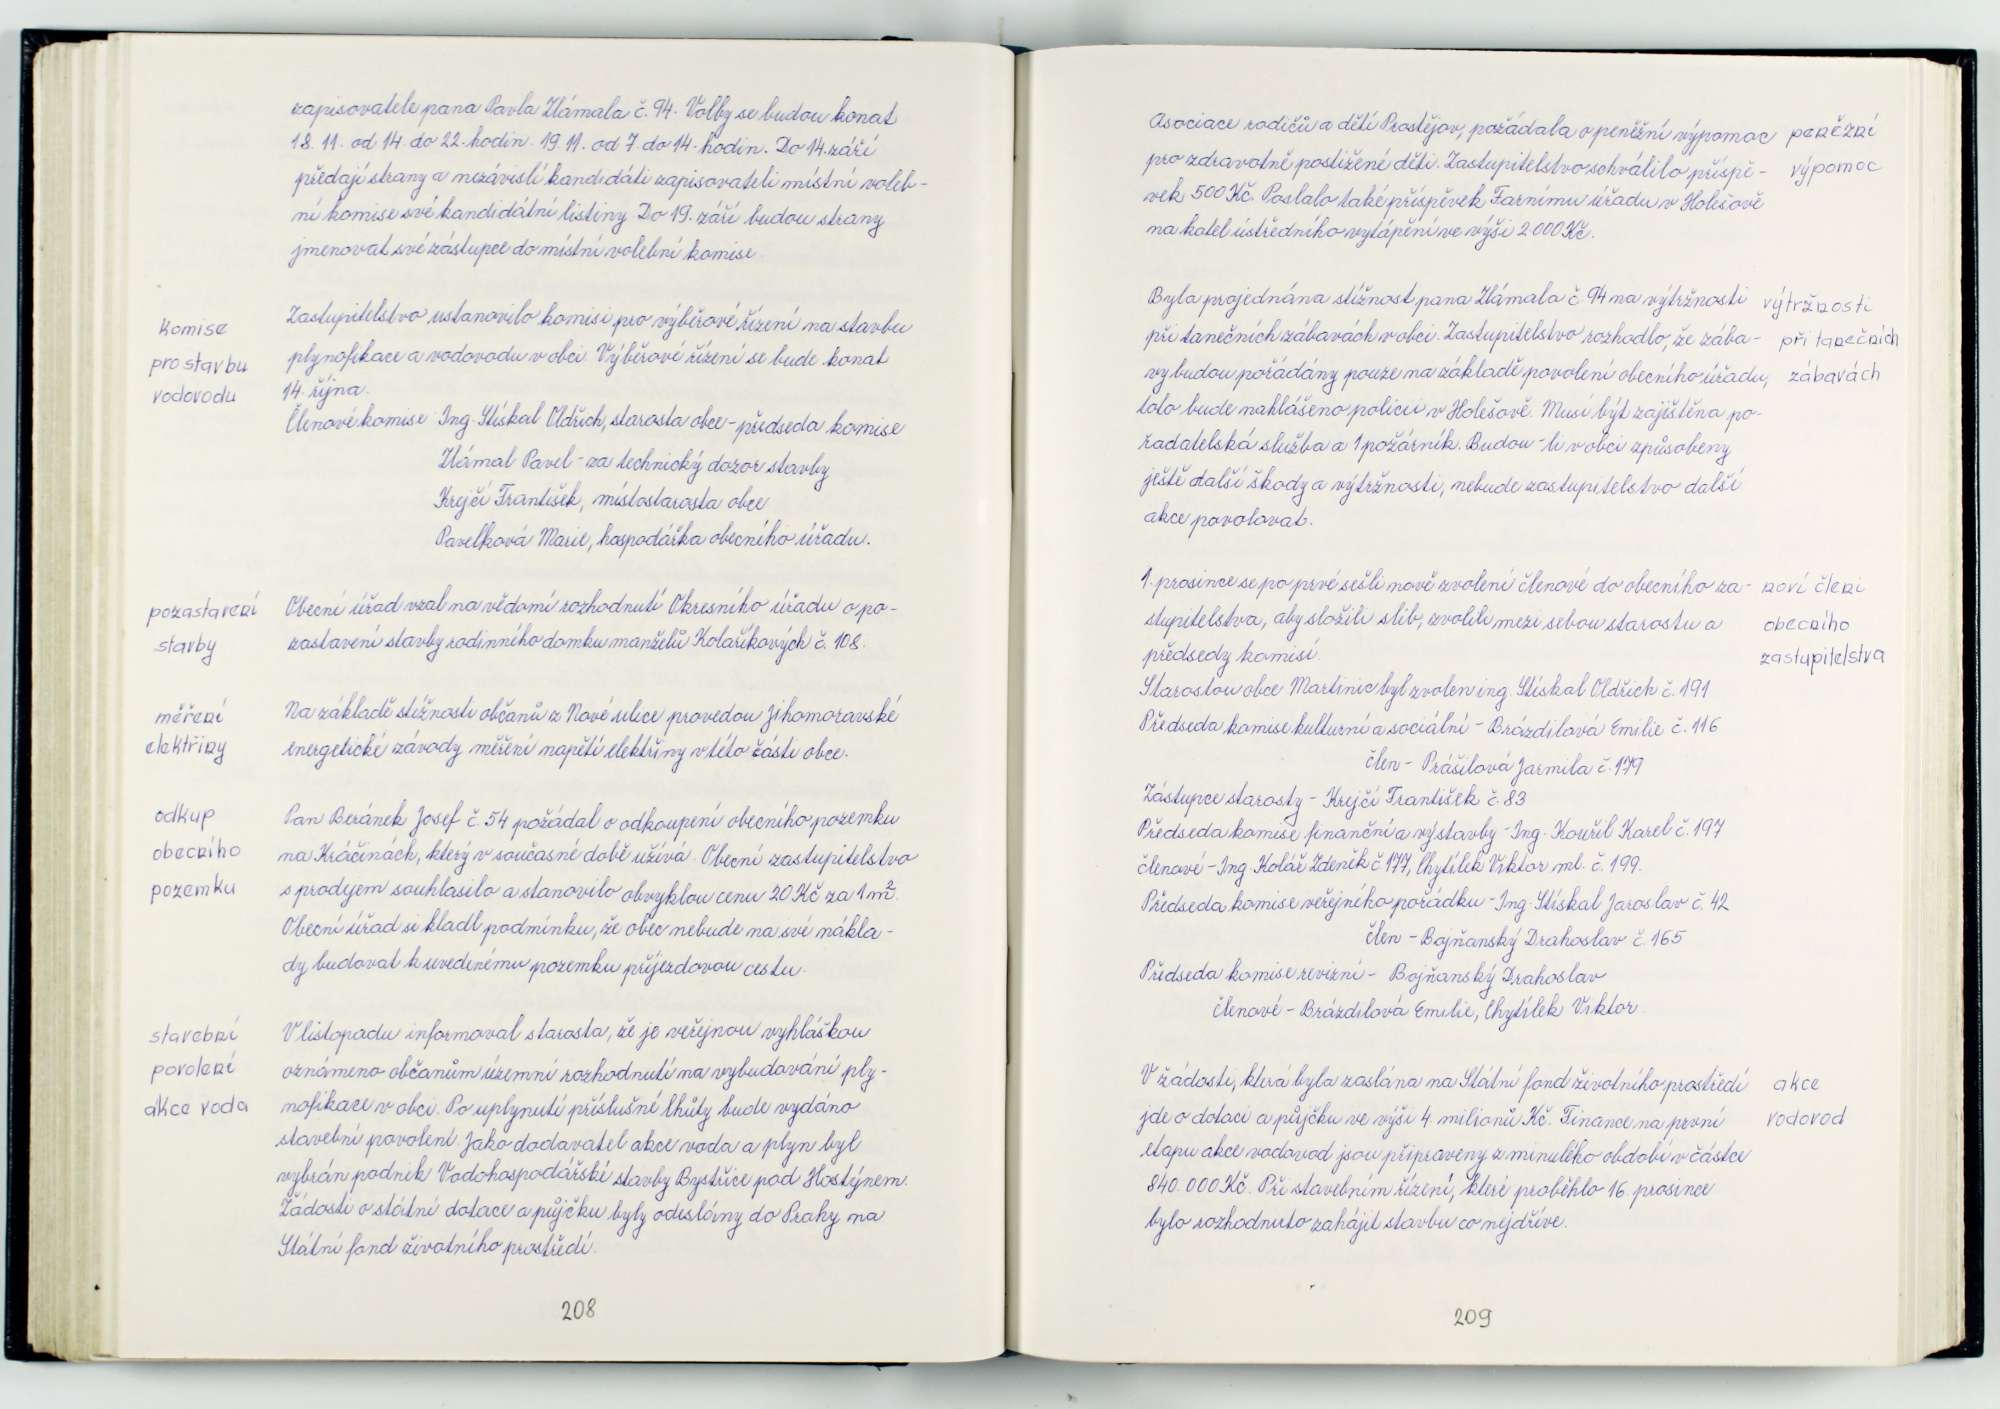 zapisovatele pana Pavla Zlámala č. 94. Volby se budou konat
18. 11. od 14 do 22 hodin. 19. 11. od 7 do 14 hodin. Do 14. září
předají strany a nezávislí kandidáti zapisovateli místní voleb-
ní komise své kandidátní listiny Do 19. září budou strany
jmenovat své zástupce do místní volební komise.
komise
pro stavbu
vodovodu
Zastupitelstvo ustanovilo komisi pro výběrové řízení na stavbu
plynofikace a vodovodu v obci. Výběrové řízení se bude konat
14. října.
Členové komise Ing. Stískal Oldřich, starosta obce - předseda komise
Zlámal Pavel - za technický dozor stavby
Krejčí František, místostarosta obce
Pavelková Marie, hospodářka obecního úřadu.
pozastavení
stavby
Obecní úřad vzal na vědomí rozhodnutí Okresního úřadu o po-
zastavení stavby rodinného domku manželů Kolaříkových č. 108.
měření
elektřiny
Na základě stížnosti občanů z Nové ulice provedou Jihomoravské
energetické závody měření napětí elektřiny v této části obce.
odkup
obecního
pozemku
Pan Beránek Josef č. 54 požádal o odkoupení obecního pozemku
na Kráčinách, který v současné době užívá. Obecní zastupitelstvo
s prodejem souhlasilo a stanovilo obvyklou cenu 20 Kč za 1 m².
Obecní úřad si kladl podmínku, že obec nebude na své nákla-
dy budovat k uvedenému pozemku příjezdovou cestu.
stavební
povolení
akce voda
V listopadu informoval starosta, že je veřejnou vyhláškou
oznámeno občanům územní rozhodnutí na vybudování ply-
nofikace v obci. Po uplynutí příslušné lhůty bude vydáno
stavební povolení. Jako dodavatel akce voda a plyn byl
vybrán podnik Vodohospodářské stavby Bystřice pod Hostýnem.
Žádosti o státní dotace a půjčku byly odeslány do Prahy na
Státní fond životního prostředí.
208
Asociace rodičů a dětí Prostějov, požádala o peněžní výpomoc
pro zdravotně postižené děti. Zastupitelstvo schválilo příspě-
vek 500 Kč. Poslalo také příspěvek Farnímu úřadu v Holešově
na kotel ústředního vytápění ve výši 2 000 Kč.
peněžní
výpomoc
Byla projednána stížnost pana Zlámala č. 94 na výtržnosti
při tanečních zábavách v obci. Zastupitelstvo rozhodlo, že zába-
vy budou pořádány pouze na základě povolení obecního úřadu,
toto bude nahlášeno policii v Holešově. Musí být zajištěna po-
řadatelská služba a 1 požárník. Budou-li v obci způsobeny
ještě další škody a výtržnosti, nebude zastupitelstvo další
akce povolovat.
výtržnosti
při tanečních
zábavách
1. prosince se po prvé sešli nově zvolení členové do obecního za-
stupitelstva, aby složili slib, zvolili mezi sebou starostu a
předsedy komisí.
noví členi
obecního
zastupitelstva
Starostou obce Martinic byl zvolen ing. Stískal Oldřich č. 191
Předseda komise kulturní a sociální - Brázdilová Emilie č. 116
člen - Prášilová Jarmila č. 179
Zástupce starosty - Krejčí František č. 83
Předseda komise finanční a výstavby - Ing. Kouřil Karel č. 197
členové - Ing. Kolář Zdeněk č 177, Chytílek Viktor ml. č. 199.
Předseda komise veřejného pořádku - Ing. Stískal Jaroslav č. 42
člen - Bojňanský Drahoslav č. 165
Předseda komise revizní - Bojňanský Drahoslav
členové - Brázdilová Emilie, Chytílek Viktor
V žádosti, která byla zaslána na Státní fond životního prostředí
jde o dotaci a půjčku ve výši 4 milionů Kč. Finance na první
etapu akce vodovod jsou připraveny z minulého období v částce
840.000 Kč. Při stavebním řízení, které proběhlo 16. prosince
bylo rozhodnuto zahájit stavbu co nejdříve.
akce
vodovod
209